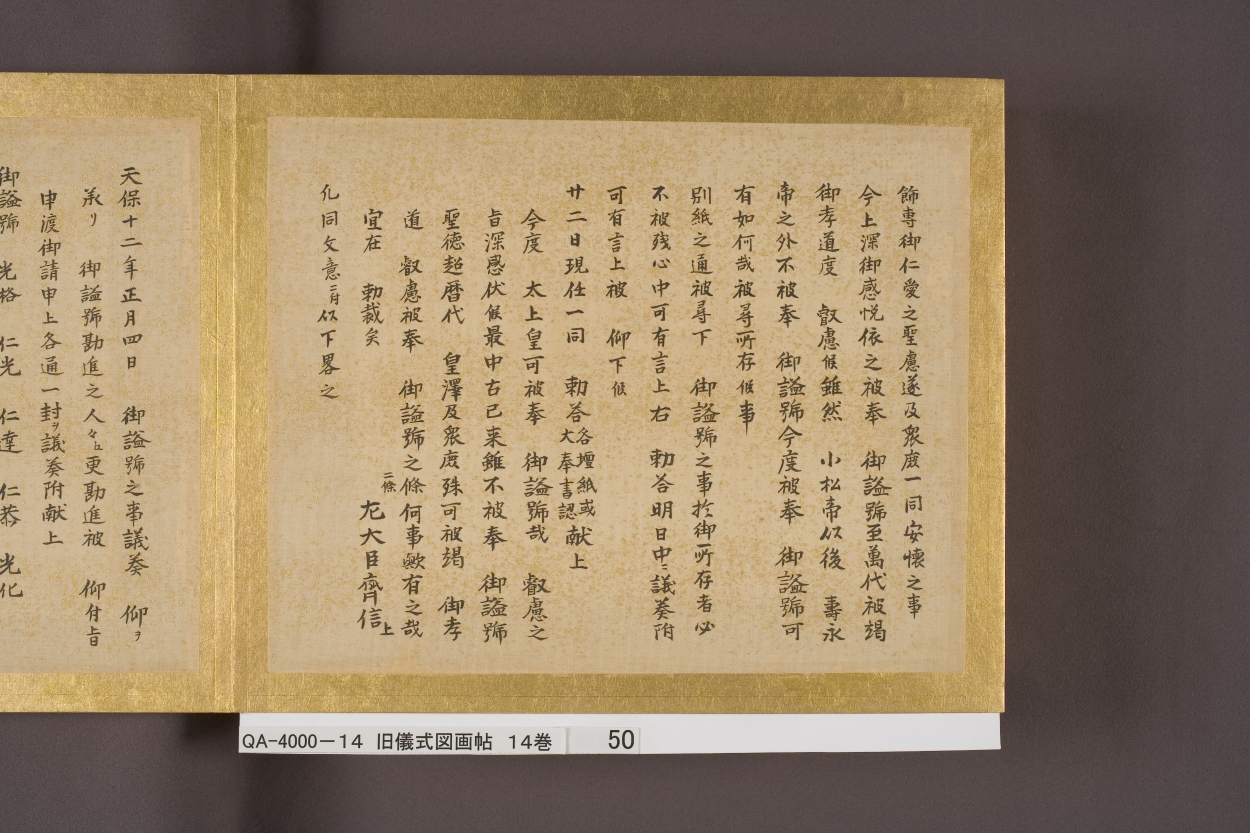 飾専御仁愛之聖慮遂及衆庶一同安懐之事
今上深御感悦依之被奉　御諡號至萬代被竭
御孝道度　叡慮候雖然　小松帝以後　壽永
帝之外不被奉　御諡號今度被奉　御諡號可
有如何哉被尋所存候事
別紙之通被尋下　御諡號之事於御所存者必
不被残心中可有言上右　勅答明日中ニ議奏附
可有言上被　仰下候
廿二日現任一同　勅答各壇紙或大奉書認献上
今度　太上皇可被奉　御諡號哉　叡慮之
旨深感伏候最中古已来雖不被奉　御諡號
聖徳超暦代　皇澤及衆庶殊可被竭　御孝
道　叡慮被奉　御諡號之條何事歟有之哉
宜在　勅裁矣
二條
左大臣齊信上
各同文意ニ付以下畧之
天保十二年正月四日　御諡號之事議奏　仰ヲ
承リ　御諡號勘進之人々江更勘進被　仰付旨
申渡御請申上各通一封ヲ議奏附献上
御諡號　光格　仁光　仁達　仁恭　光化
QA-4000-14　旧儀式図画帖　14巻　50